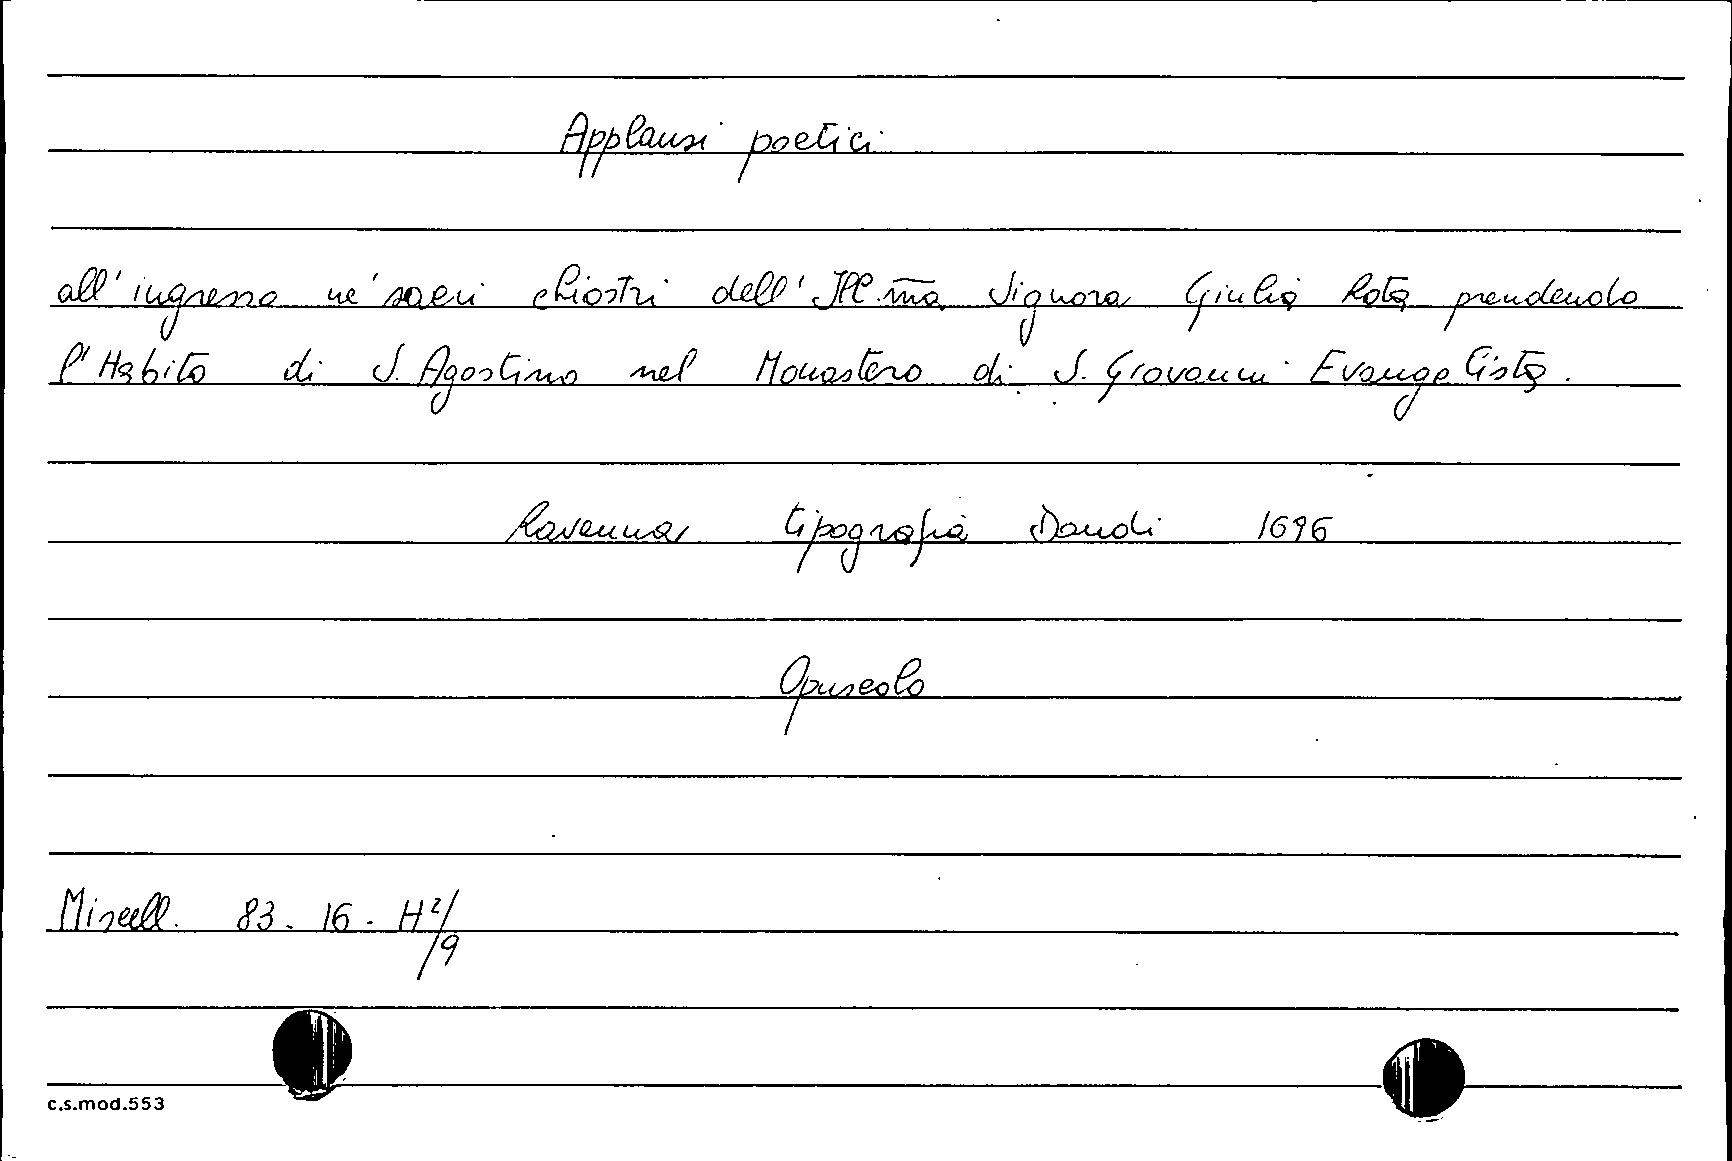 Applausi poetici
all'ingresso ne' sacri chiostri dell'Ill.ma Signora Giulia Rota prendendo
l'Habito di S. Agostino nel Monastero di S. Giovanni Evangelista.
Ravenna tipografia Dandi 1696
Opuscolo
Miscell. 83. 16. H²/9
c.s.mod.553